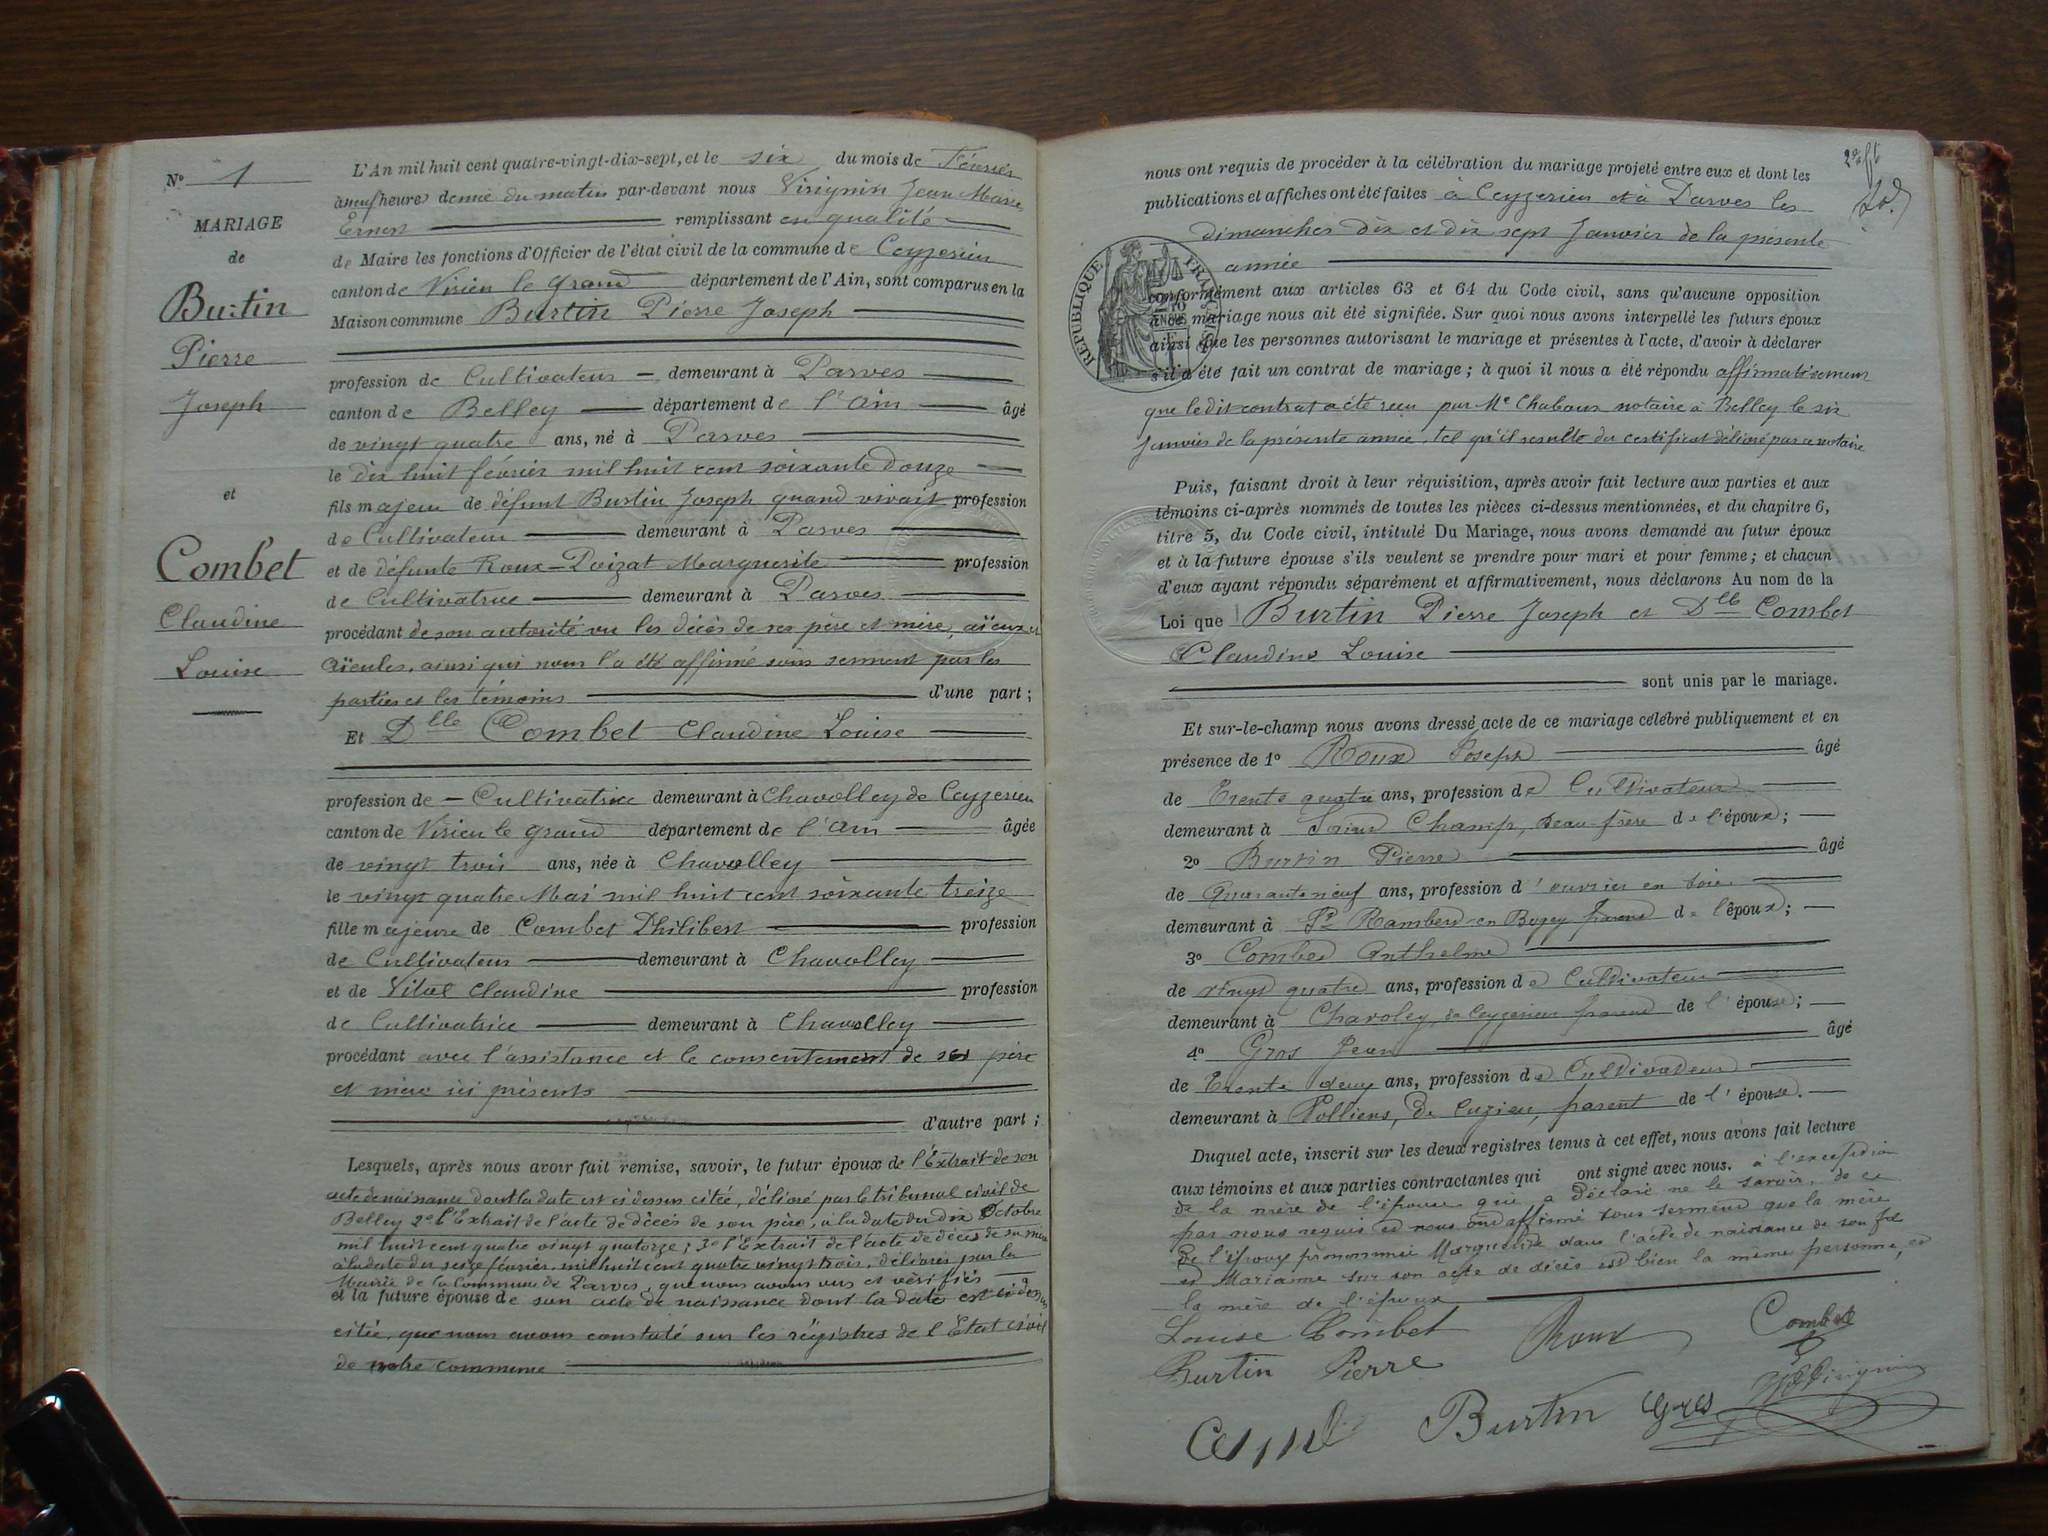 N° 1
MARIAGE
de
Burtin
Pierre
Joseph
et
Combet
Claudine
Louise
L'An mil huit cent quatre-vingt-dix-sept, et le six du mois de Février
à neuf heures demie du matin par-devant nous Virignin Jean Marie
Ernest remplissant en qualité
de Maire les fonctions d'Officier de l'état civil de la commune de Ceyzerieu
canton de Virieu le grand département de l'Ain, sont comparus en la
Maison commune Burtin Pierre Joseph
profession de Cultivateur demeurant à Parves
canton de Belley département de l'Ain âgé
de vingt quatre ans, né à Parves
le dix huit février mil huit cent soixante douze
fils majeur de défunt Burtin Joseph quand vivait profession
de Cultivateur demeurant à Parves
et de défunte Roux-Poizat Marguerite profession
de Cultivatrice demeurant à Parves
procédant de son autorité vu les décès de ses père et mère, aïeux et
aïeules, ainsi qui nous l'a été affirmé sous serment par les
parties et les témoins d'une part ;
Et Dlle Combet Claudine Louise
profession de Cultivatrice demeurant à Chavolley de Ceyzerieu
canton de Virieu le grand département de l'Ain âgée
de vingt trois ans, née à Chavolley
le vingt quatre Mai mil huit cent soixante treize
fille majeure de Combet Philibert profession
de Cultivateur demeurant à Chavolley
et de Vital Claudine profession
de Cultivatrice demeurant à Chavolley
procédant avec l'assistance et le consentement de ses père
et mère ici présents
d'autre part ;
Lesquels, après nous avoir fait remise, savoir, le futur époux de l'Extrait de son
acte de naissance dont la date est ci dessus citée, délivré par le tribunal civil de
Belley 2° l'Extrait de l'acte de décès de son père, à la date du dix Octobre
mil huit cent quatre vingt quatorze ; 3° l'Extrait de l'acte de décès de sa mère
à la date du seize février mil huit cent quatre vingt trois, délivrés par la
Mairie de la Commune de Parves, que nous avons vus et vérifiés
et la future épouse de son acte de naissance dont la date est ci dessus
citée, que nous avons constaté sur les régistres de l'Etat civil
de notre commune
nous ont requis de procéder à la célébration du mariage projeté entre eux et dont les
publications et affiches ont été faites à Ceyzerieu et à Parves les
dimanches dix et dix sept Janvier de la présente
année
RÉPUBLIQUE FRANÇAISE
conformément aux articles 63 et 64 du Code civil, sans qu'aucune opposition
à ce mariage nous ait été signifiée. Sur quoi nous avons interpellé les futurs époux
ainsi que les personnes autorisant le mariage et présentes à l'acte, d'avoir à déclarer
s'il a été fait un contrat de mariage ; à quoi il nous a été répondu affirmativement
que ledit contrat a été reçu par Me Chabaux notaire à Belley le six
Janvier de la présente année, tel qu'il résulte du certificat délivré par ce notaire
Puis, faisant droit à leur réquisition, après avoir fait lecture aux parties et aux
témoins ci-après nommés de toutes les pièces ci-dessus mentionnées, et du chapitre 6,
titre 5, du Code civil, intitulé Du Mariage, nous avons demandé au futur époux
et à la future épouse s'ils veulent se prendre pour mari et pour femme ; et chacun
d'eux ayant répondu séparément et affirmativement, nous déclarons Au nom de la
Loi que Burtin Pierre Joseph et Dlle Combet
Claudine Louise
sont unis par le mariage.
Et sur-le-champ nous avons dressé acte de ce mariage célébré publiquement et en
présence de 1° Roux Joseph âgé
de Trente quatre ans, profession de Cultivateur
demeurant à Champ, beau-frère de l'époux ;
2° Burtin Pierre âgé
de Quarante neuf ans, profession d'ouvrier en soie
demeurant à St Rambert en Bugey parent de l'époux ;
3° Combet Anthelme
de vingt quatre ans, profession de Cultivateur
demeurant à Chavoley de Ceyzerieu parent de l'épouse ;
4° Gros Jean âgé
de Trente deux ans, profession de Cultivateur
demeurant à Polliens, de Cuzieu, parent de l'épouse.
Duquel acte, inscrit sur les deux registres tenus à cet effet, nous avons fait lecture
aux témoins et aux parties contractantes qui ont signé avec nous. à l'exception
de la mère de l'épouse qui a déclaré ne le savoir, de ce
par nous requis et nous ont affirmé sous serment que la mère
de l'époux prénommée Marguerite dans l'acte de naissance de son fils
et Marianne sur son acte de décès est bien la même personne, et
la mère de l'époux
Louise Combet Roux Combet
Burtin Pierre
Burtin Gros Virignin